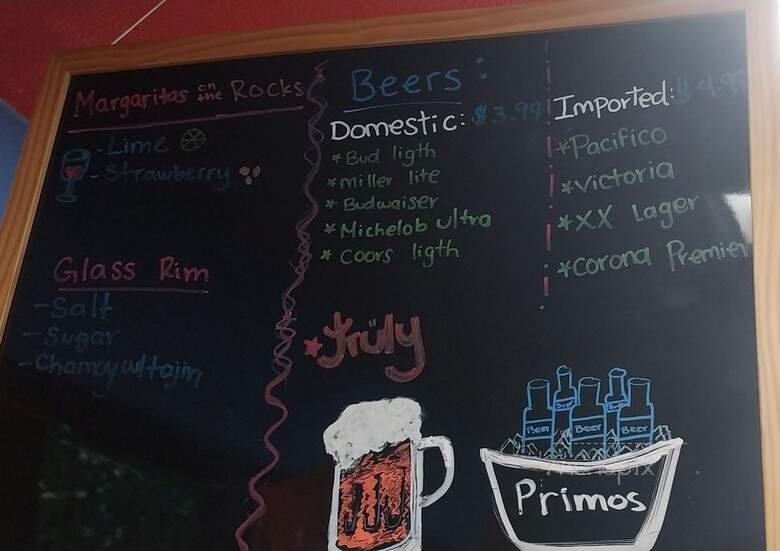 Margaritas on the Rocks
- Lime
- Strawberry
Glass Rim
- Salt
- Sugar
- Chamoy
Beers:
Domestic: $3.99
* Bud ligth
* miller lite
* Budwaiser
* Michelob ultra
* Coors ligth
* Truly
Imported: $4.99
* Pacifico
* Victoria
* XX Lager
* Corona Premier
BEER
BEER
BEER
BEER
Primos